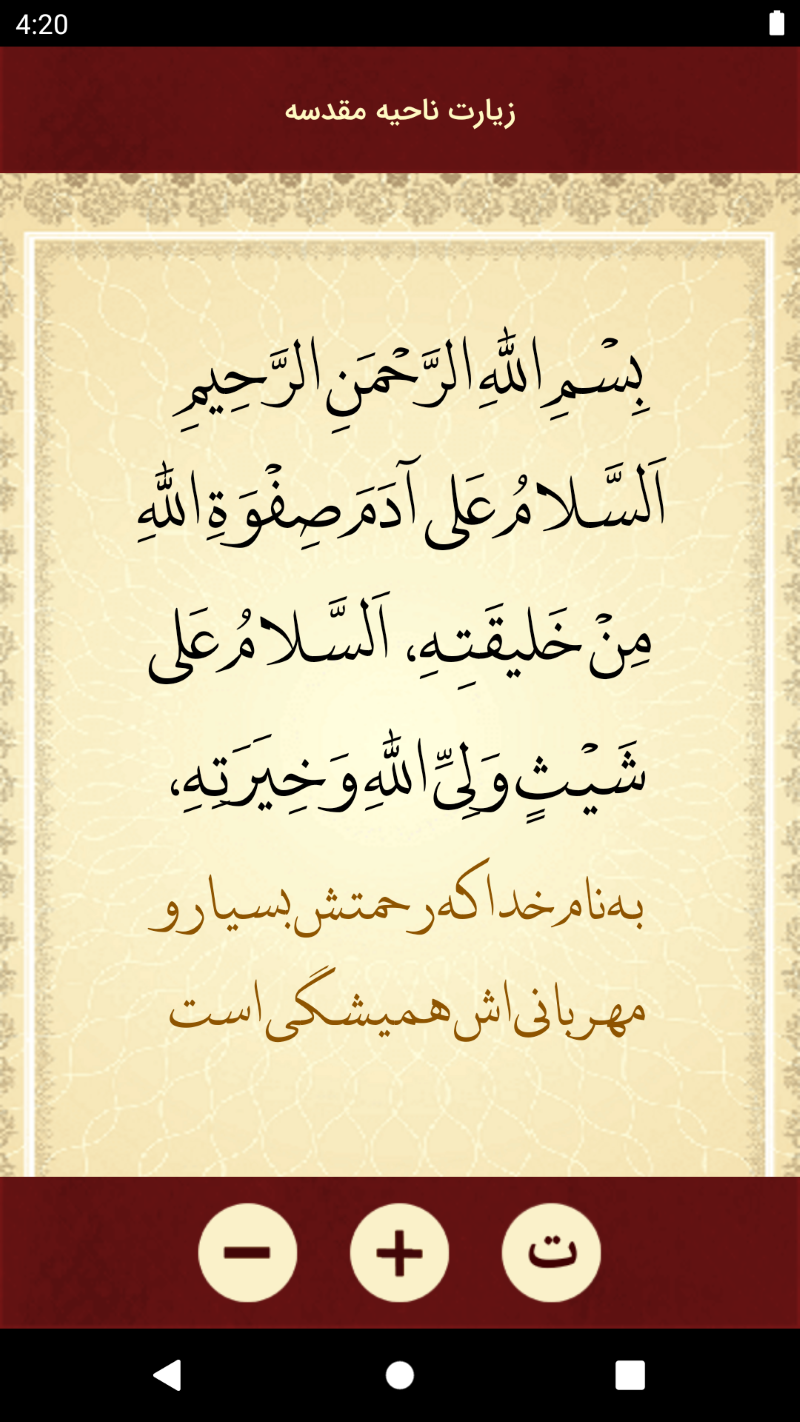 4:20
زیارت ناحیه مقدسه
بِسْمِ اللّٰهِ الرَّحْمَنِ الرَّحِیمِ
اَلسَّلامُ عَلی آدَمَ صِفْوَةِ اللّٰهِ
مِنْ خَلیقَتِهِ، اَلسَّلامُ عَلی
شَیْثٍ وَلِیِّ اللّٰهِ وَ خِیَرَتِهِ،
به نام خدا که رحمتش بسیار و
مهربانی اش همیشگی است
− + ت